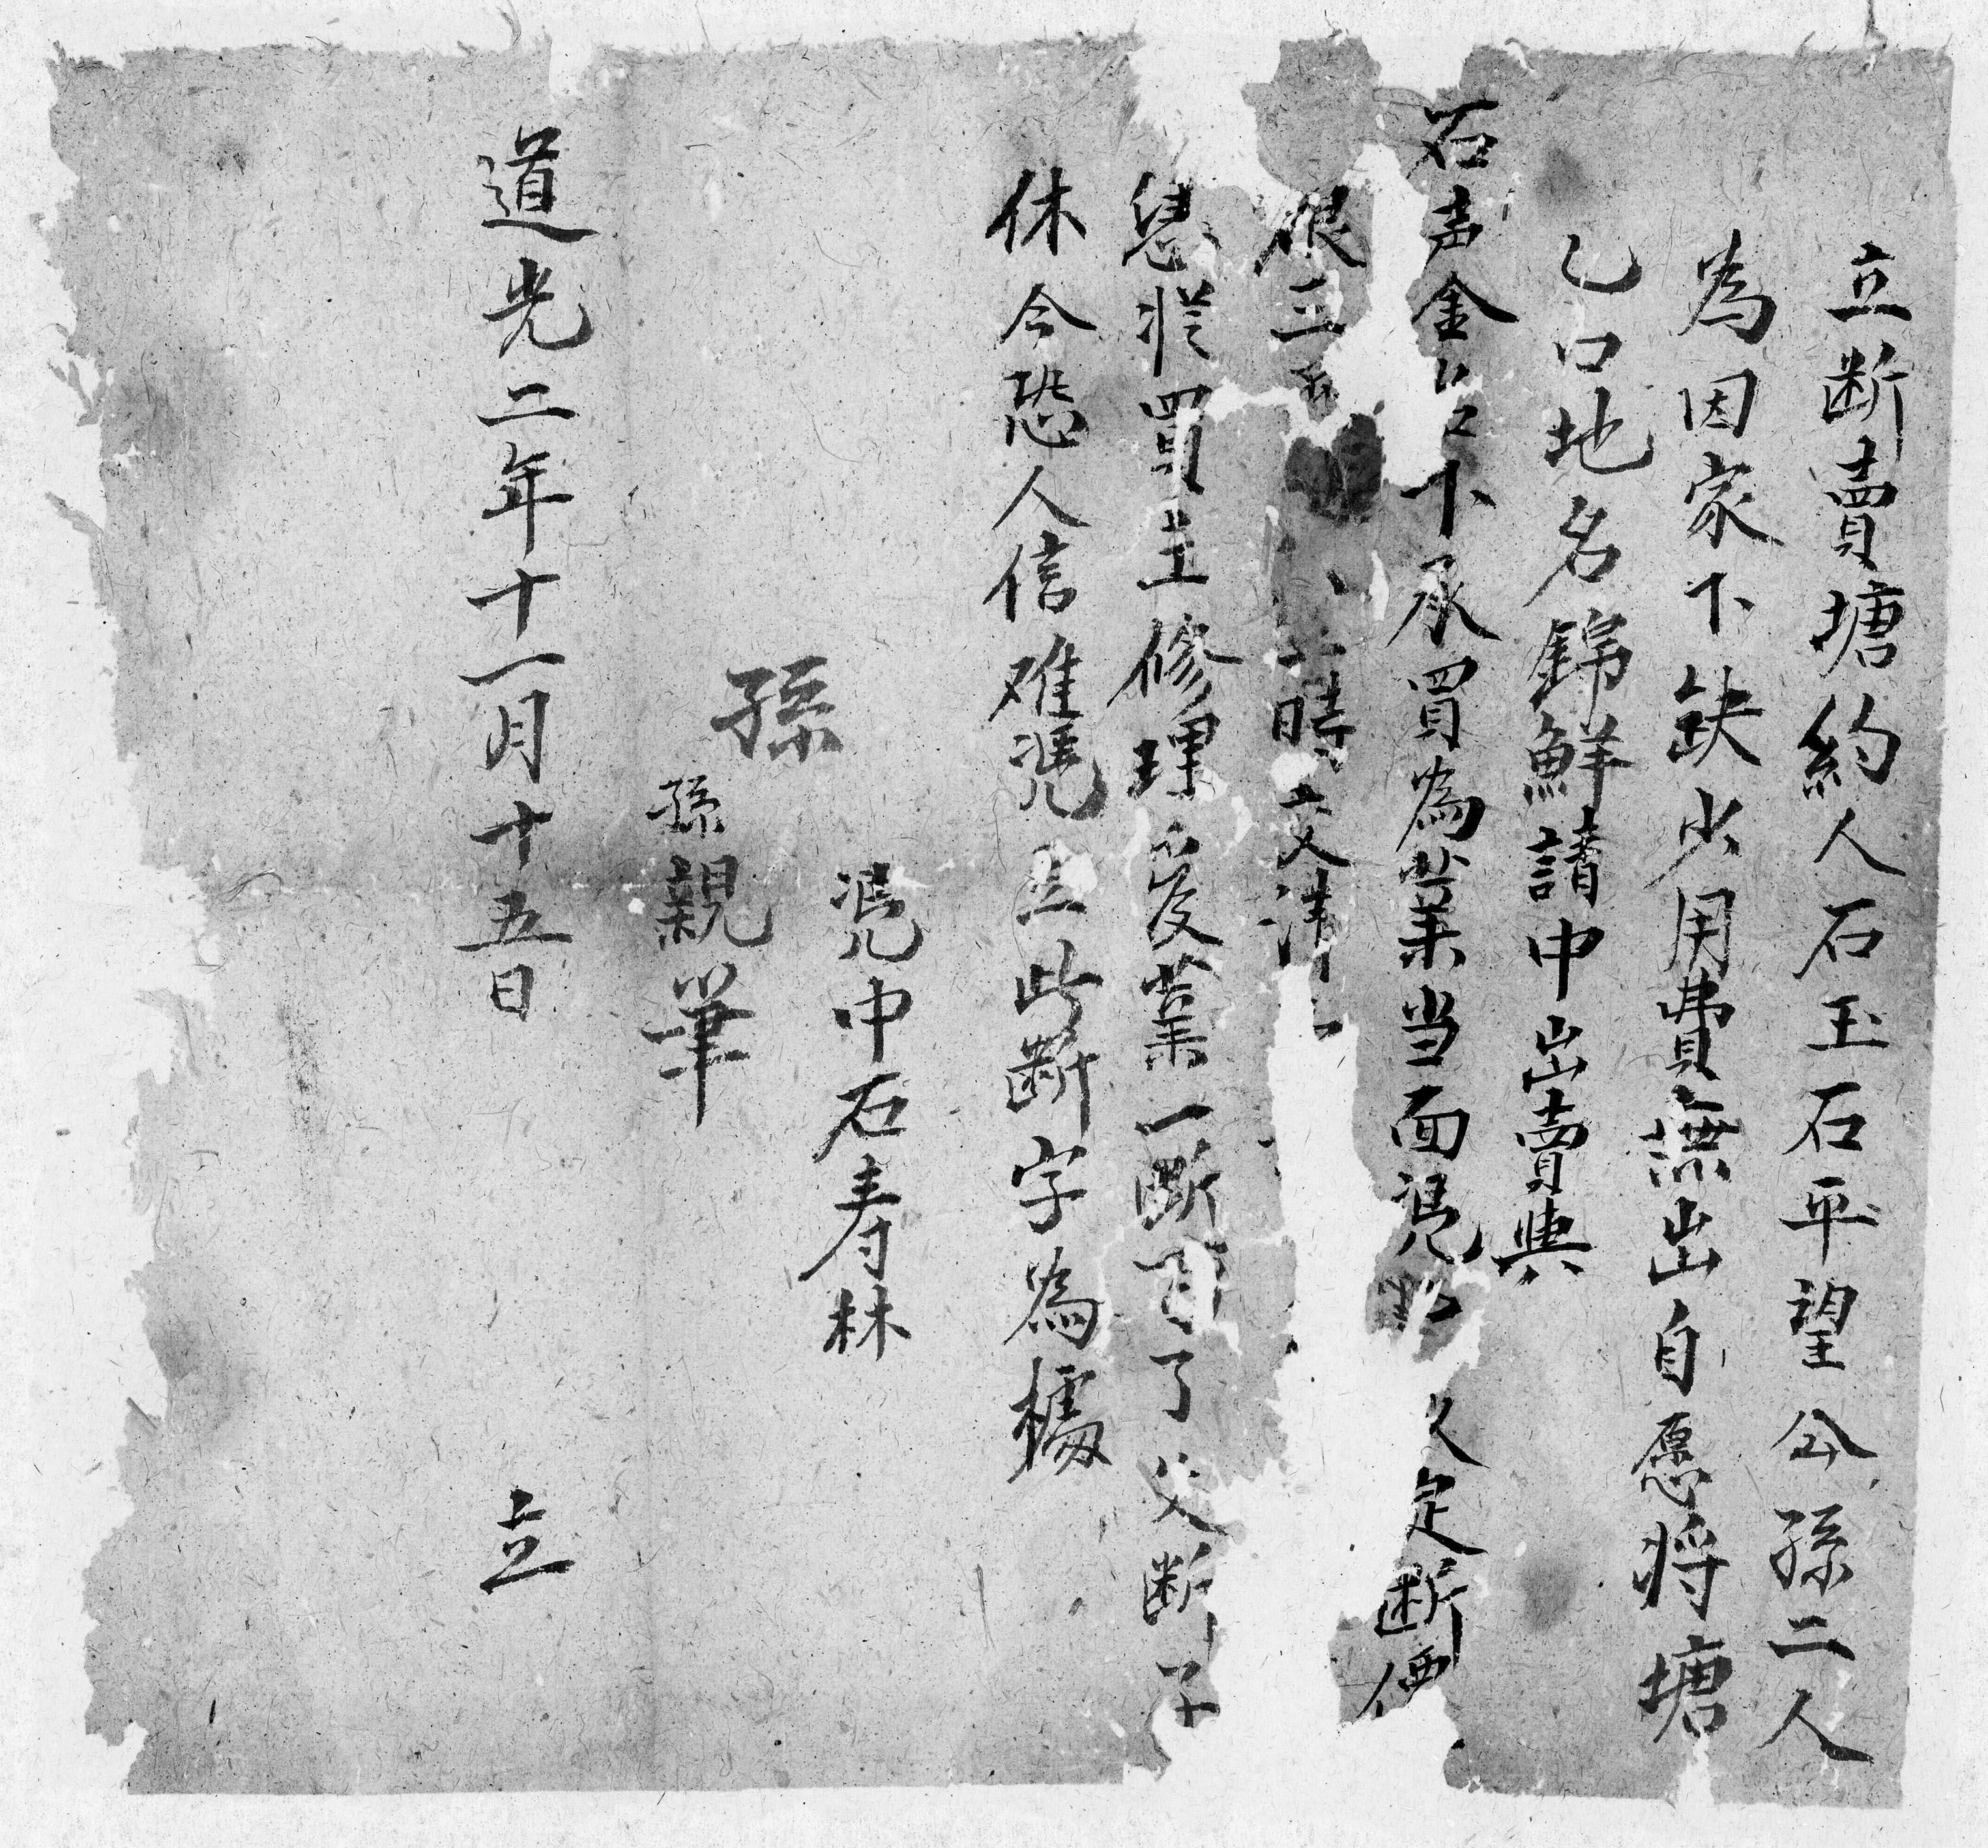 立断賣塘約人石玉石平望公孫二人
為因家下缺少用費無出自愿将塘
乙口地名錦鮮請中出賣與
石声金公下承買為業当面凭定断價
銀三時交清
悠買主修理受業一断了父断子
休今恐人信难凭立此断字為櫨
凭中石寿林
孫
孫親筆
道光二年十一月十五日立